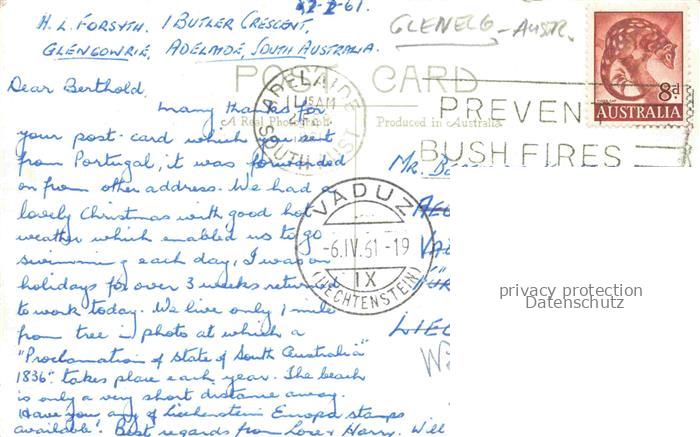 2-2-61.
H. L. FORSYTH. 1 BUTLER CRESCENT,
GLENGOWRIE, ADELAIDE, SOUTH AUSTRALIA.
GLENELG - AUSTR.
POST CARD
A Real Photograph Produced in Australia
ADELAIDE
SOUTH AUST
8d
AUSTRALIA
PREVENT
BUSH FIRES
Dear Berthold,
Many thanks for
your post-card which you sent
from Portugal, it was forwarded
on from other address. We had a
lovely Christmas with good hot
weather which enabled us to go
swimming each day, I was on
holidays for over 3 weeks returned
to work today. We live only 1 mile
from tree in photo at which a
"Proclamation of State of South Australia"
1836" takes place each year. The beach
is only a very short distance away.
Have you any of Liechenstein Europa stamps
available? Best regards from Lore & Harry. Will
VADUZ
-6.IV.61-19
IX
(LIECHTENSTEIN)
MR.
LIE
privacy protection
Datenschutz